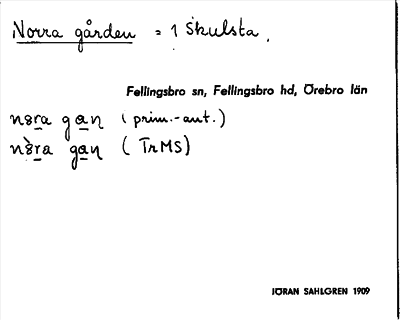 Norra gården = 1 Skulsta.
Fellingsbro sn, Fellingsbro hd, Örebro län
nora gaṇ (prim.-ant.)
nòra gaṇ (TrMS)
JÖRAN SAHLGREN 1909